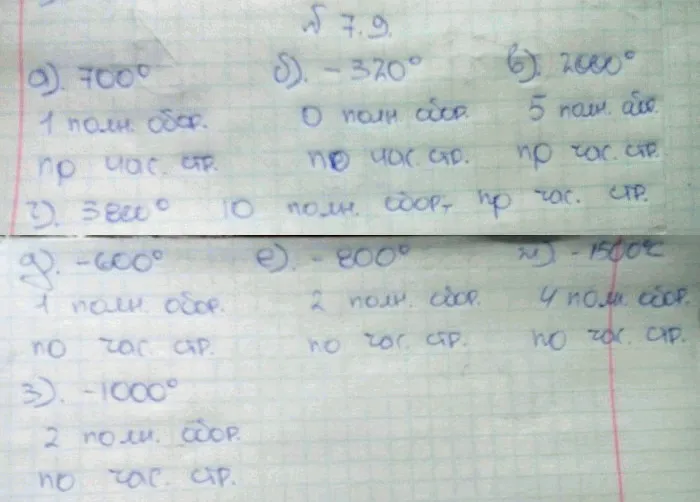 № 7.9.
а). 700° б). -320° в). 2000°
1 полн. обор. 0 полн. обор. 5 полн. обор.
пр час. стр. по час. стр. пр час. стр.
г). 3800° 10 полн. обор. пр час. стр.
д). -600° е). -800° ж) -1500°
1 полн. обор. 2 полн. обор. 4 полн. обор.
по час. стр. по час. стр. по час. стр.
з). -1000°
2 полн. обор.
по час. стр.